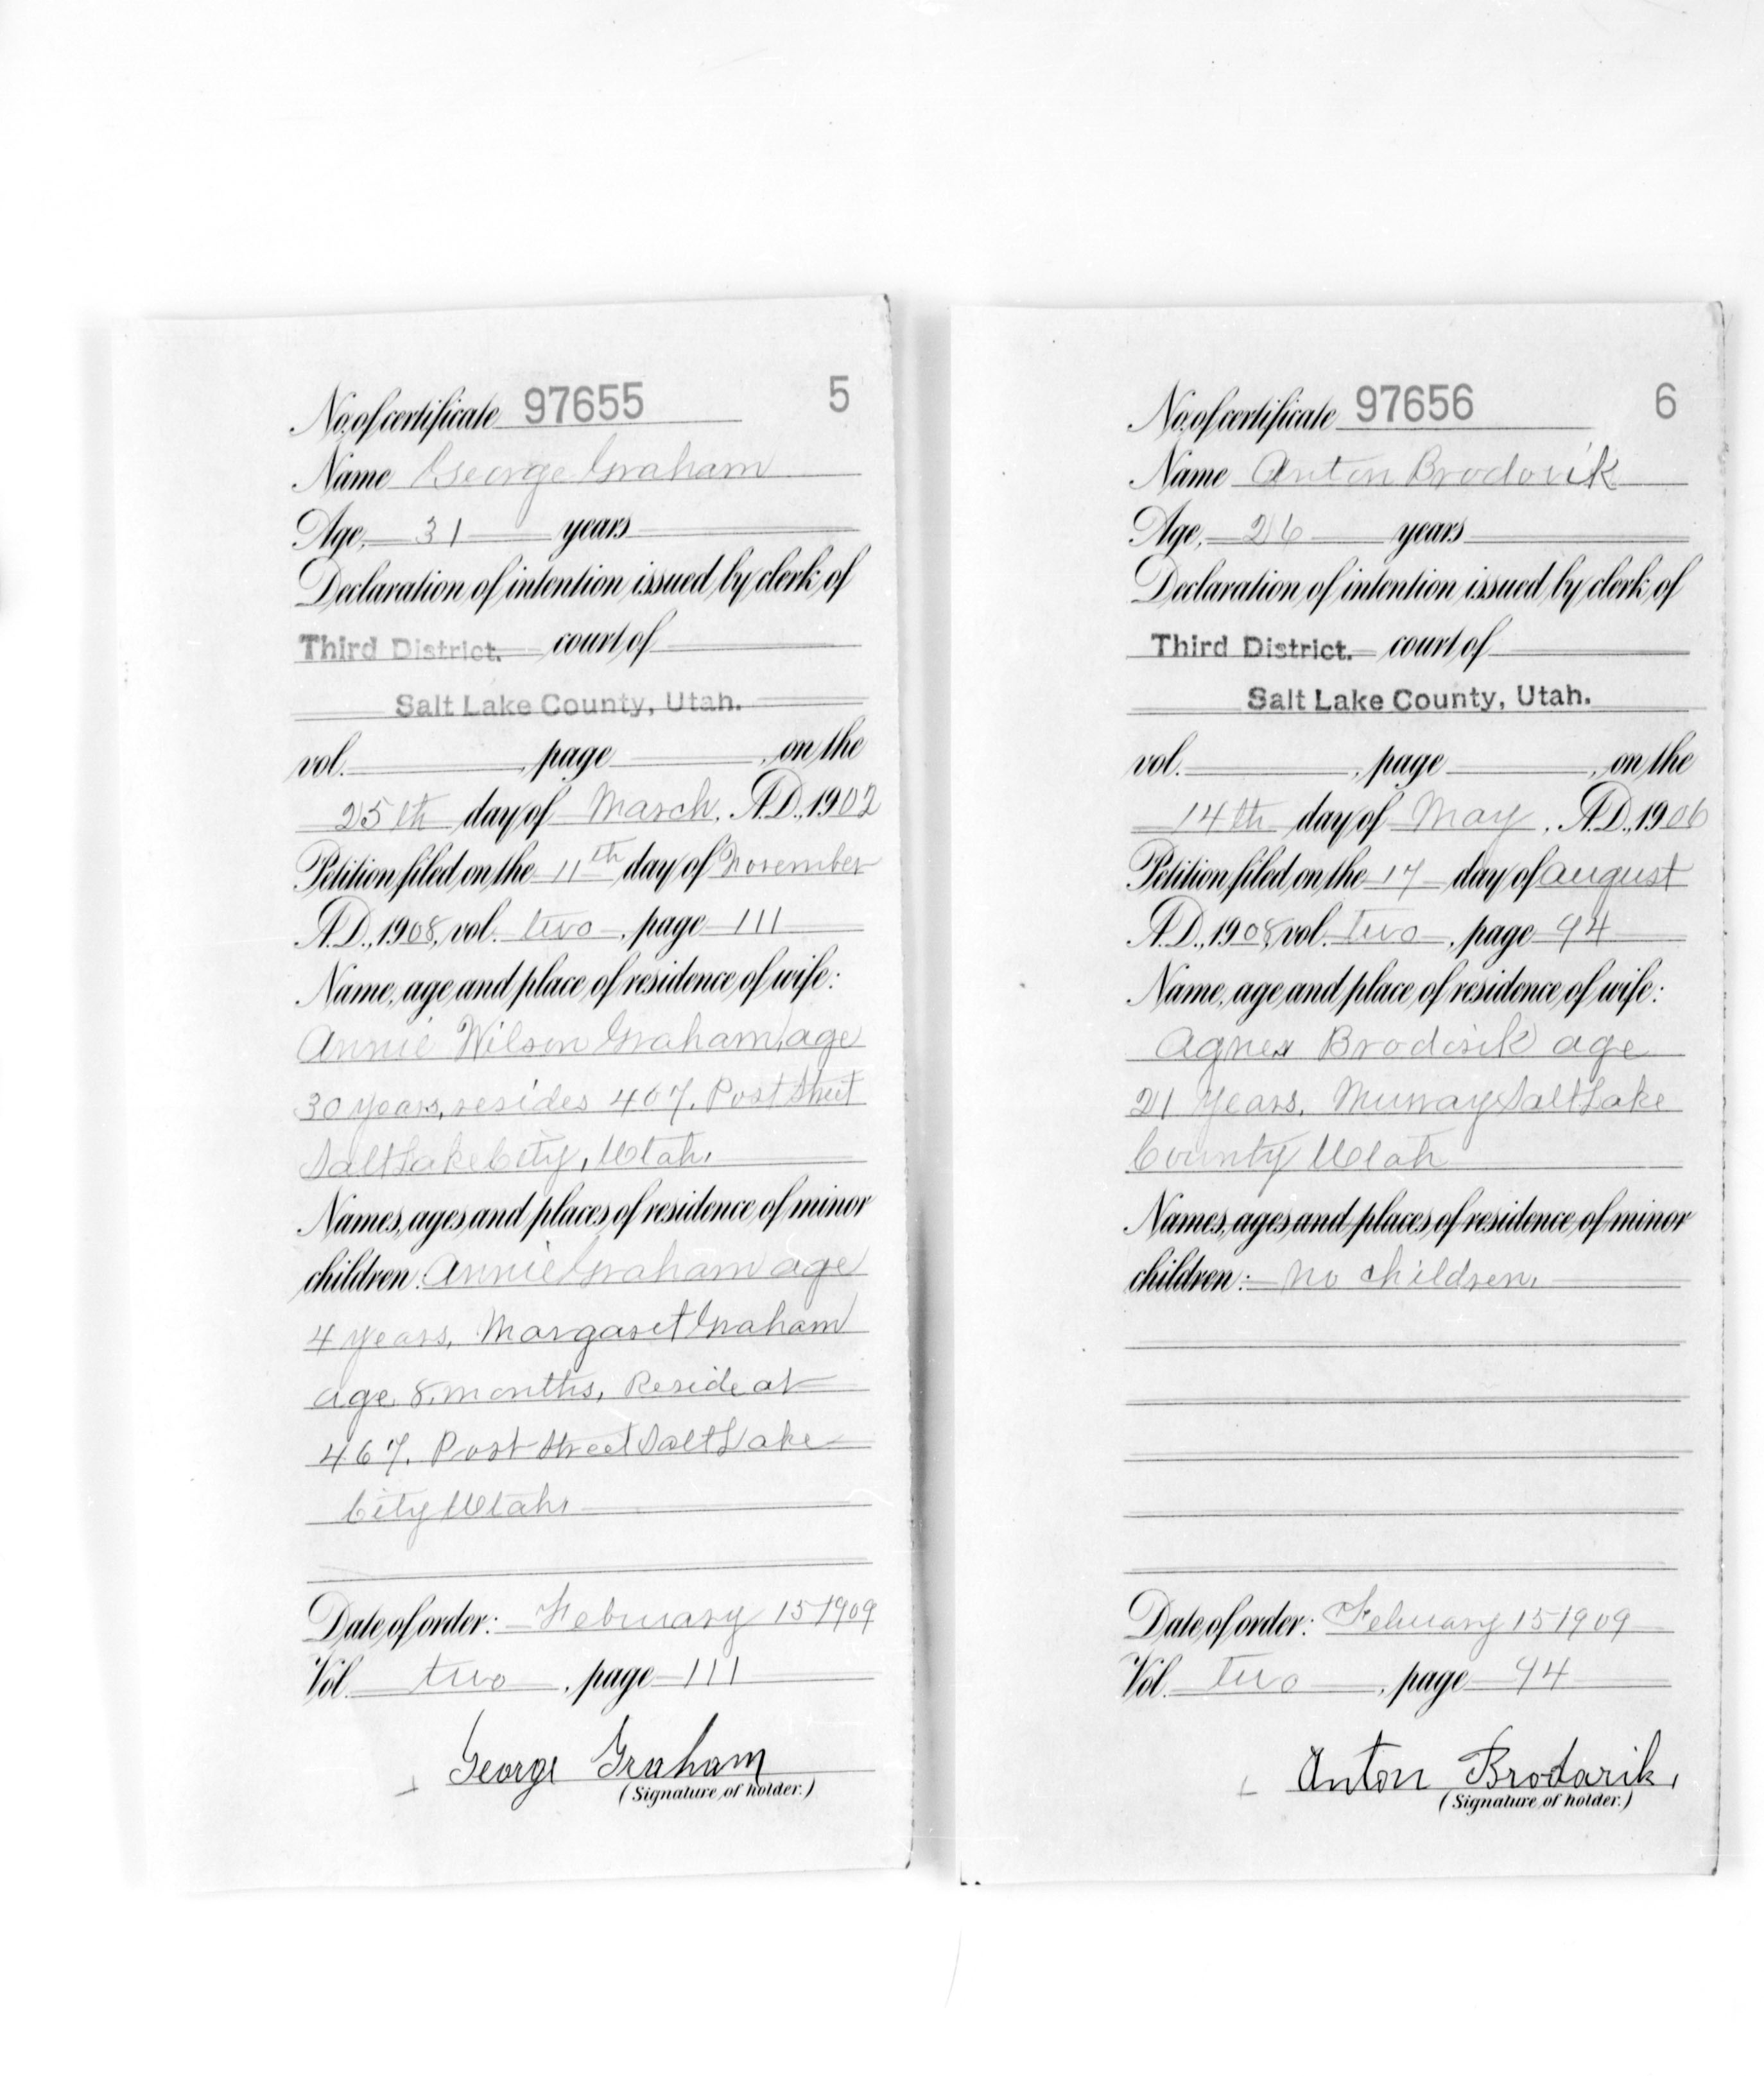 No. of certificate 97655 5
Name George Graham
Age, 31 years
Declaration of intention issued by clerk of
Third District. court of
Salt Lake County, Utah.
vol. , page , on the
25th day of March, A.D., 1902
Petition filed on the 11th day of November
A.D., 1908, vol. two, page 111
Name, age and place of residence of wife:
Annie Wilson Graham, age
30 years, resides 467, Post Street
Salt Lake City, Utah.
Names, ages and places of residence of minor
children: Annie Graham age
4 years, Margaret Graham
age 8 months, Reside at
467, Post Street Salt Lake
City Utah,
Date of order: February 15 1909
Vol. two, page 111
George Graham
(Signature of holder.)
No. of certificate 97656 6
Name Anton Brodovik
Age, 26 years
Declaration of intention issued by clerk of
Third District. court of
Salt Lake County, Utah.
vol. , page , on the
14th day of May, A.D., 1906
Petition filed on the 17 day of August
A.D., 1908, vol. Two, page 94
Name, age and place of residence of wife:
Agnes age
21 years, Murray Salt Lake
County Utah
Names, ages and places of residence of minor
children: No children,
Date of order: February 15 1909
Vol. Two, page 94
Anton Brodarik,
(Signature of holder.)